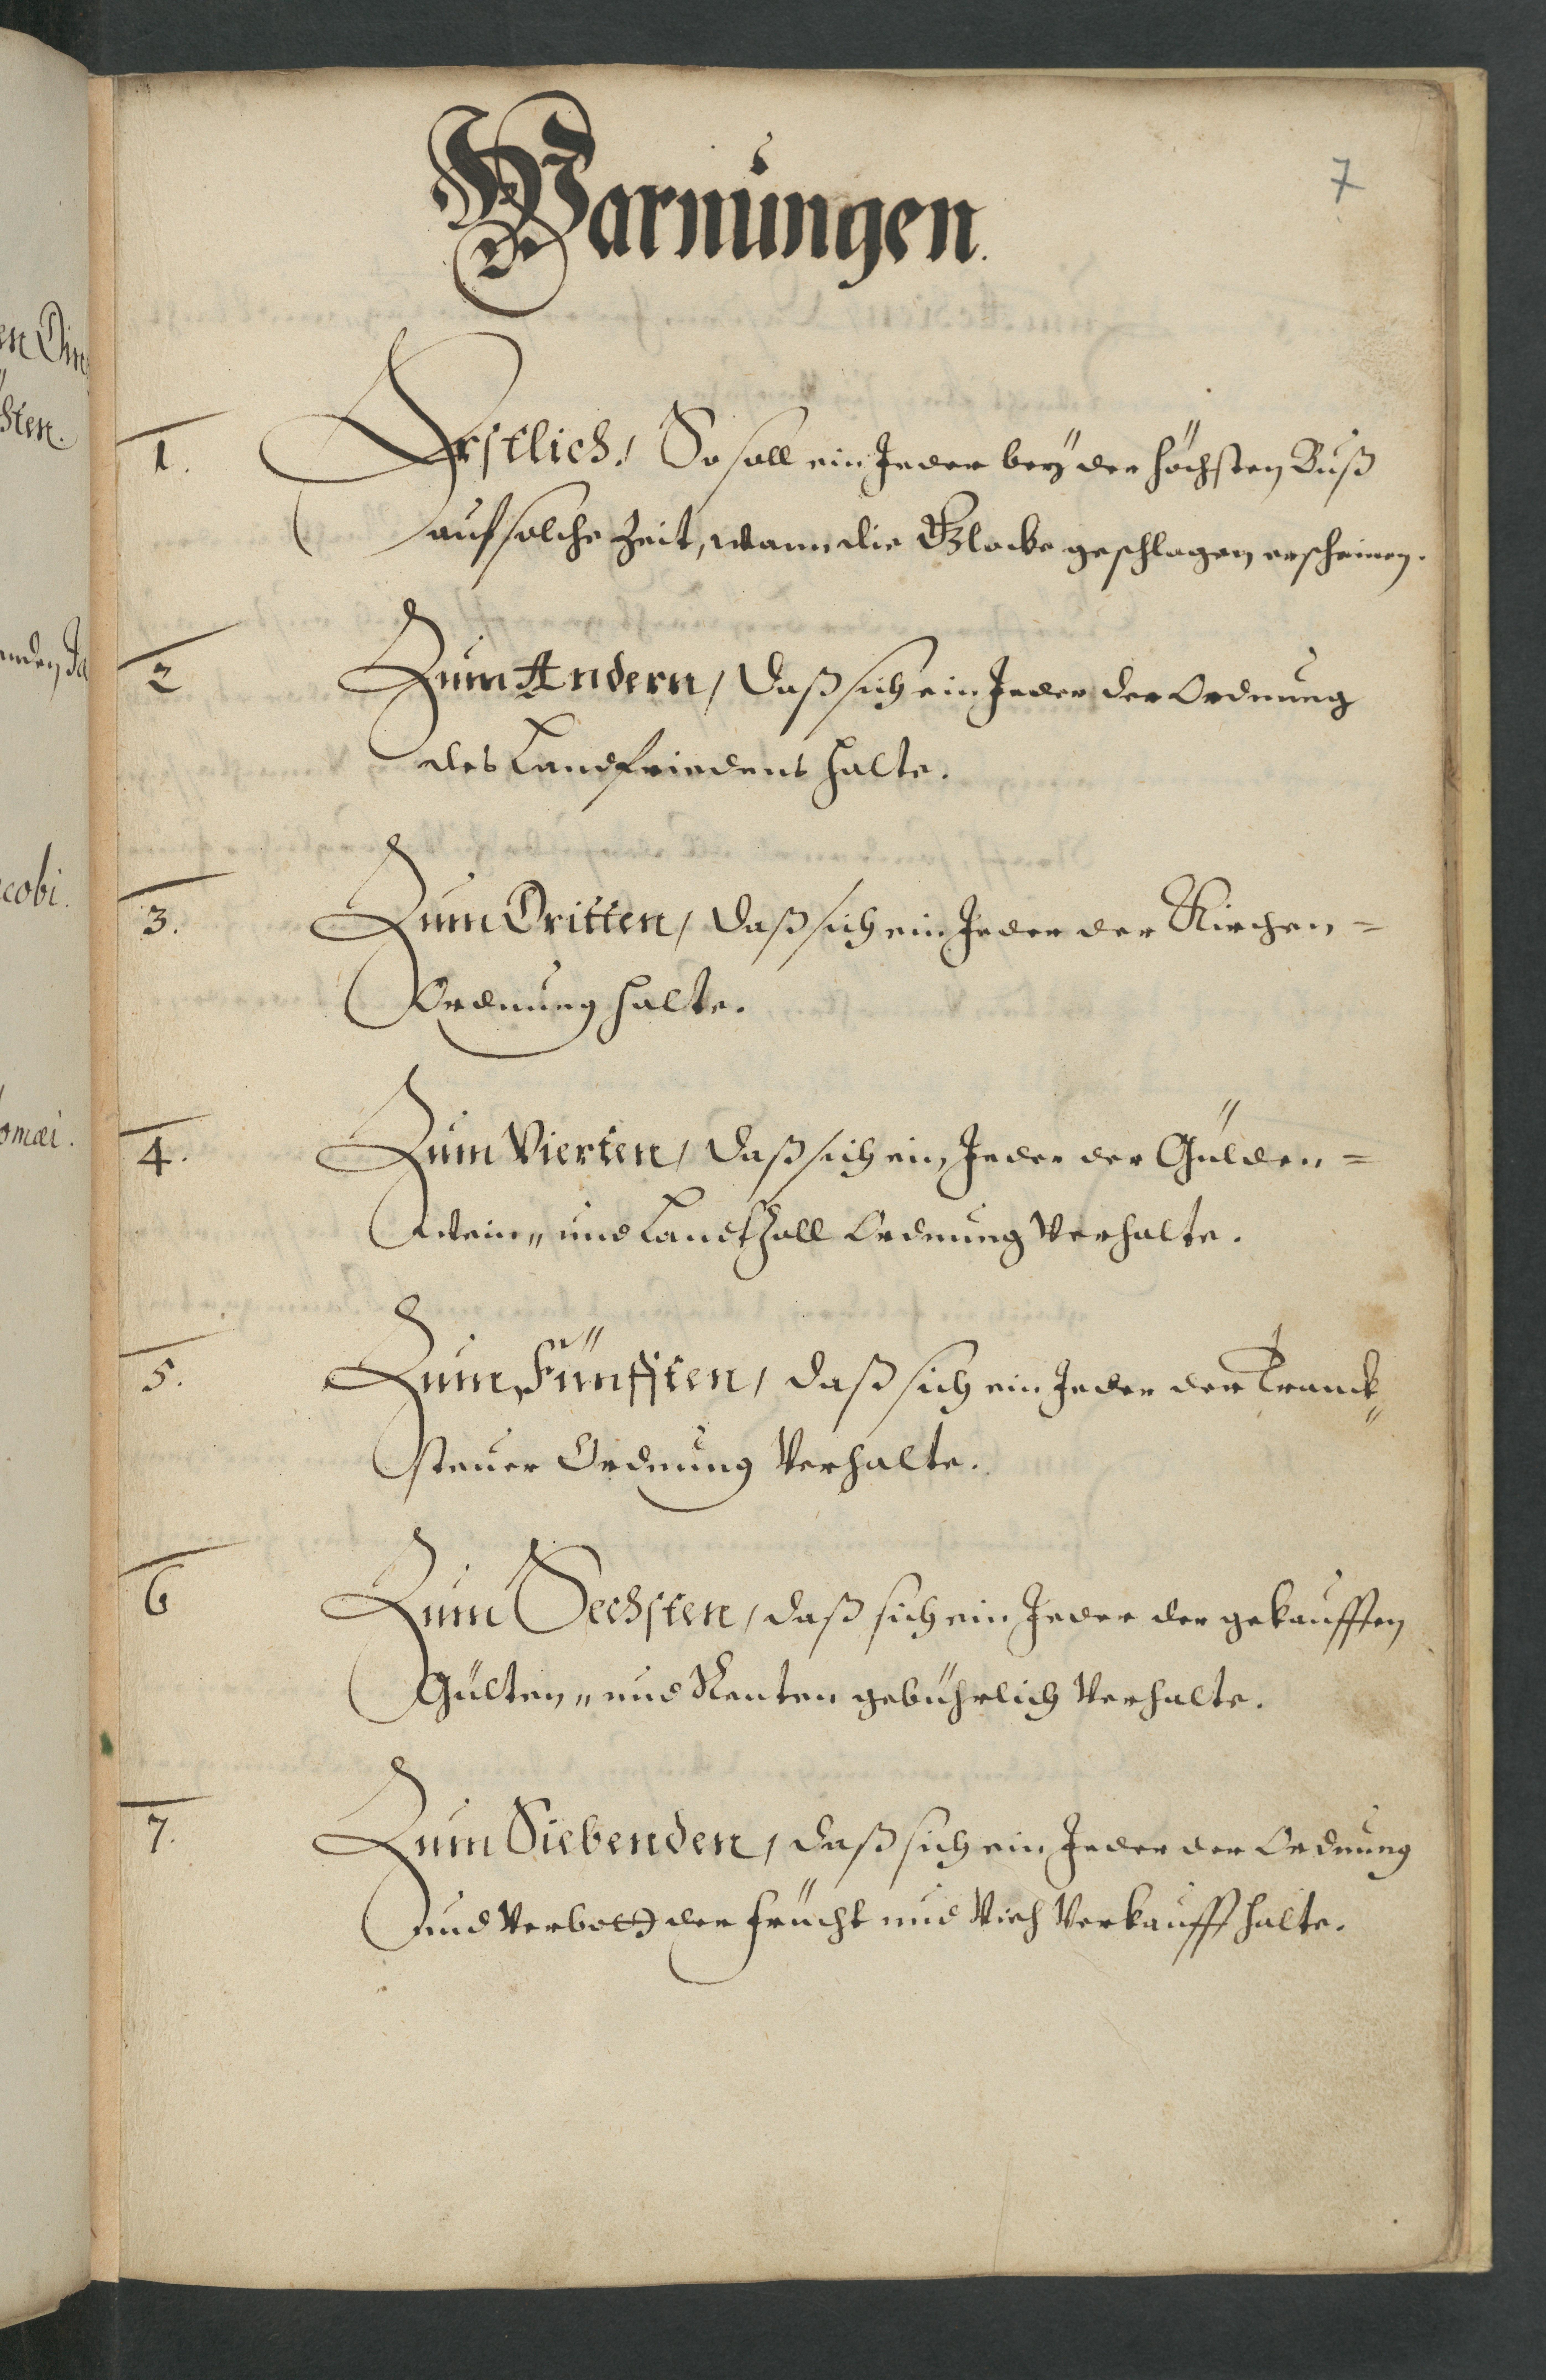 7
Warnungen.
1. Erstlich, So soll ein Jeder beÿ der höchsten Buß
auf solche Zeit, wann die Glocke geschlagen erscheinen.
2 Zum Andern, Daß sich ein Jeder der Ordnung
des Landfriedens halte.
3. Zum Dritten, Daß sich ein Jeder der Kirchen=
Ordnung halte.
4. Zum Vierten, Daß sich ein Jeder der Gülden=
Wein" und Landtzoll Ordnung Verhalte.
5. Zum Fünfften, Daß sich ein Jeder der Tranck"
steuer Ordnung Verhalte.
6 Zum Sechsten, Daß sich ein Jeder der gekaufften
Gülten" und Renten gebührlich Verhalte.
7. Zum Siebenden, Daß sich ein Jeder der Ordnung
und Verbott der Frücht und Vieh Verkauff halte.
sten.
cobi.
omæi.